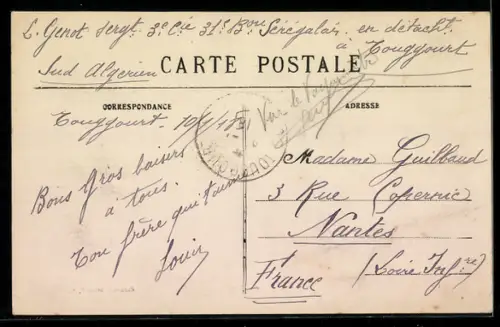 L. Genot Sergt 3e Cie 31e Bon Sénégalais en détacht
à Touggourt
Sud Algérien
CARTE POSTALE
CORRESPONDANCE
ADRESSE
Touggourt
Vu le
Bons Gros baisers
à tous.
Ton frère qui t'aime
Louis
Madame Guilbaud
3 Rue Copernic
Nantes
(Loire Infre)
France